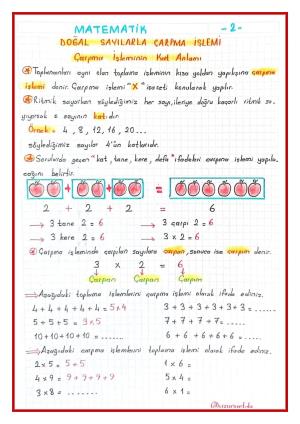 MATEMATİK -2-
DOĞAL SAYILARLA ÇARPMA İŞLEMİ
Çarpma İşleminin Kat Anlamı
Toplananları aynı olan toplama işleminin kısa yoldan yapılışına çarpma
işlemi denir. Çarpma işlemi "X" işareti konularak yapılır.
Ritmik sayarken söylediğimiz her sayı, ileriye doğru kaçarlı ritmik sa-
yıyorsak o sayının katıdır.
Örnek = 4, 8, 12, 16, 20...
söylediğimiz sayılar 4'ün katlarıdır.
Sorularda geçen "kat, tane, kere, defa" ifadeleri çarpma işlemi yapıla-
cağını belirtir.
+ + =
2 + 2 + 2 = 6
→ 3 tane 2 = 6 → 3 çarpı 2 = 6
→ 3 kere 2 = 6 → 3 x 2 = 6
Çarpma işleminde çarpılan sayılara çarpan, sonuca ise çarpım denir.
3 x 2 = 6
Çarpan Çarpan Çarpım
Aşağıdaki toplama işlemlerini çarpma işlemi olarak ifade ediniz.
4+4+4+4+4 = 5x4 3+3+3+3+3+3 = ......
5+5+5 = 3x5 7+7+7+7 = .......
10+10+10+10 = ...... 6+6+6+6+6 = ......
Aşağıdaki çarpma işlemlerini toplama işlemi olarak ifade ediniz.
2x5 = 5+5 1x6 =
4x9 = 9+9+9+9 5x4 =
3x8 = ....... 6x1 =